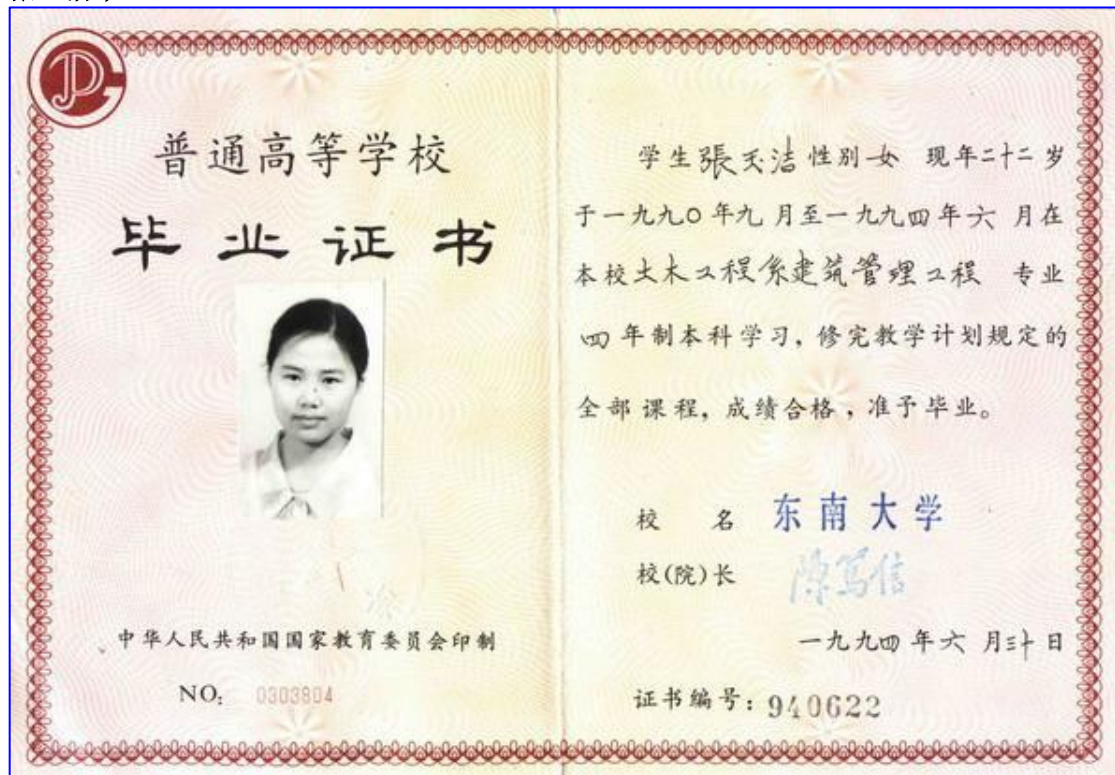 普通高等学校
毕业证书
中华人民共和国国家教育委员会印制
NO: 0303804
学生張文洁性别女 现年二十二岁
于一九九〇年九月至一九九四年六月在
本校土木工程系建筑管理工程 专业
四年制本科学习，修完教学计划规定的
全部课程，成绩合格，准予毕业。
校 名 东南大学
校(院)长 陈笃信
一九九四年六月三十日
证书编号：940622